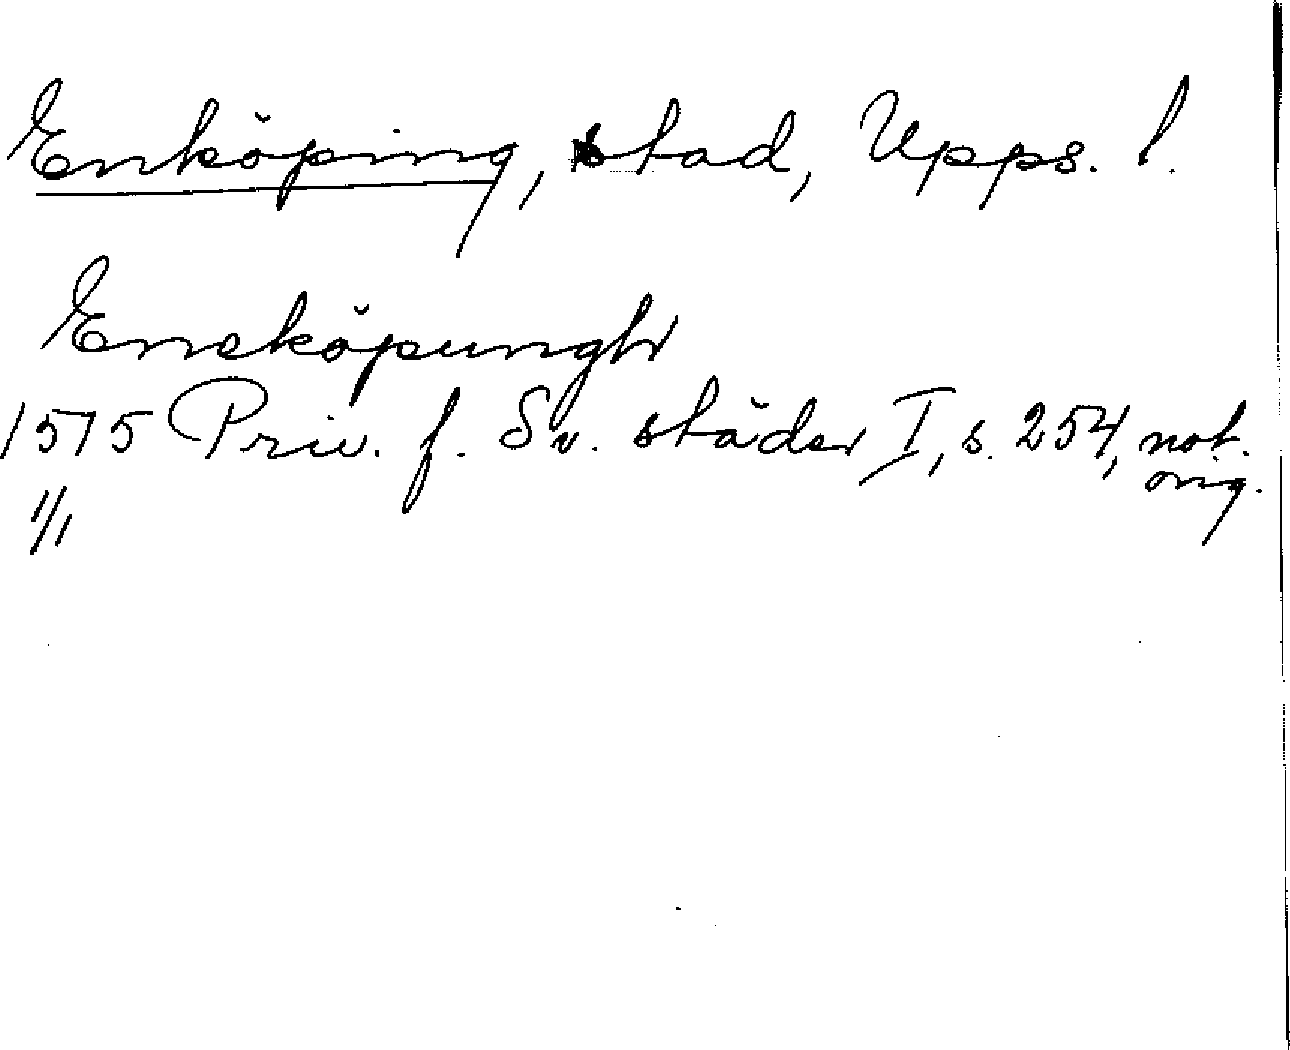 Enköping, stad, Upps. l.
Eneköpungh
1575 Priv. f. Sv. städer I, s. 254, not.
orig.
1/1